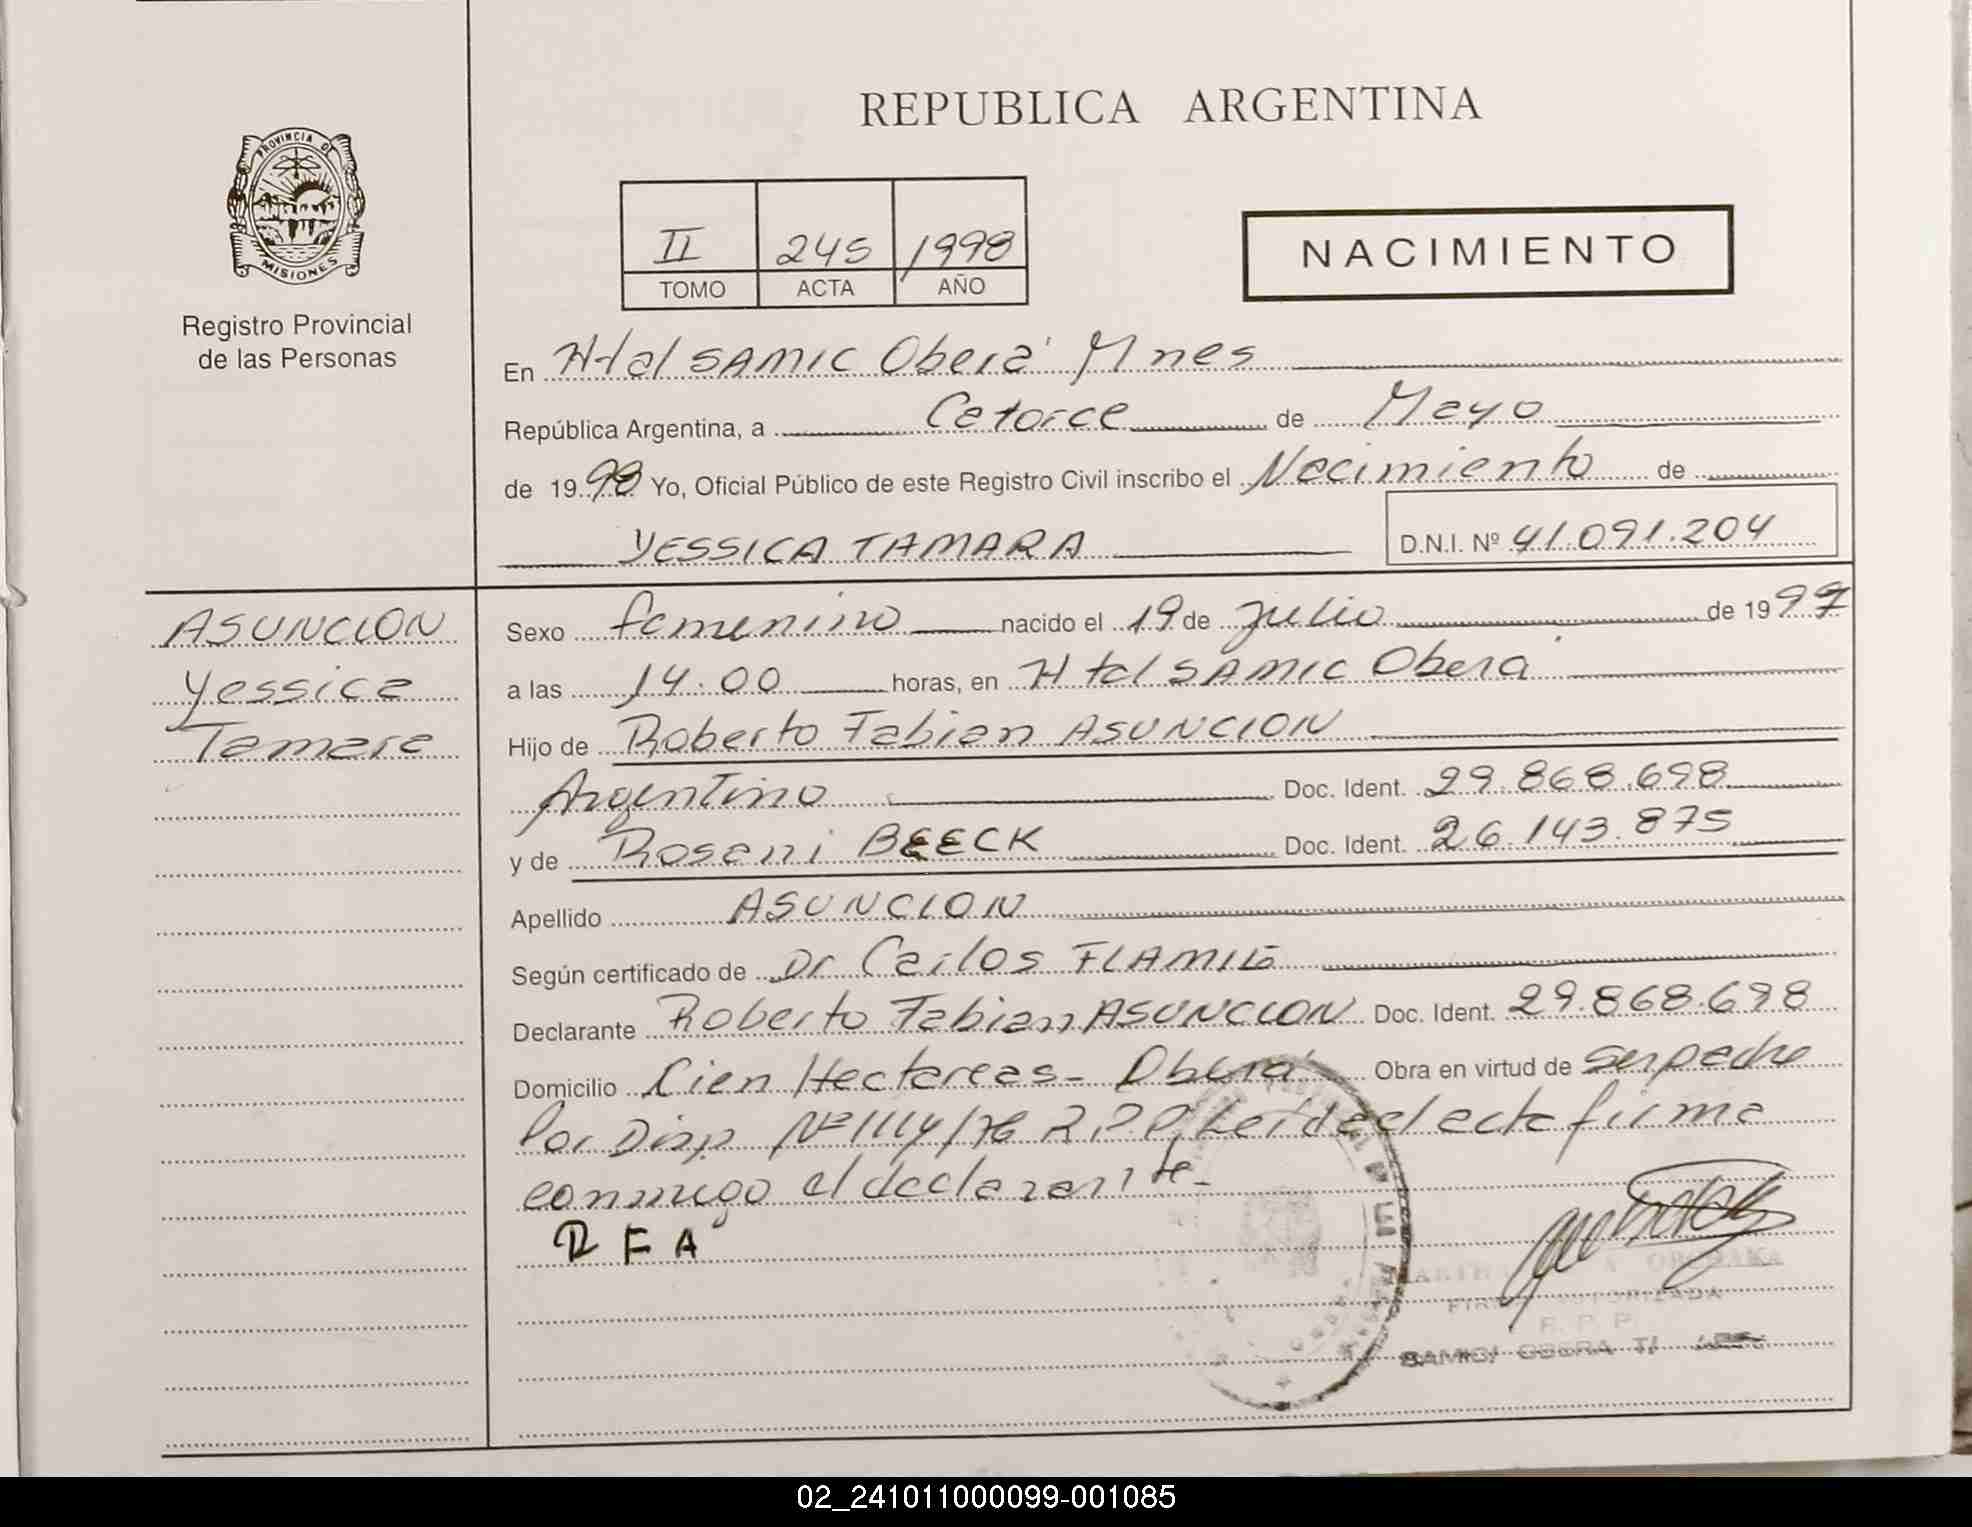 REPUBLICA ARGENTINA
PROVINCIA DE
MISIONES
Registro Provincial
de las Personas
II 245 1998
TOMO ACTA AÑO
NACIMIENTO
En Htal SAMIC Oberá Mnes
República Argentina, a Catorce de Mayo
de 1998 Yo, Oficial Público de este Registro Civil inscribo el Nacimiento de
YESSICA TAMARA D.N.I. Nº 41.091.204
ASUNCION
Yessica
Tamara
Sexo femenino nacido el 19 de Julio de 1997
a las 14.00 horas, en Htal SAMIC Oberá
Hijo de Roberto Fabian ASUNCION
Argentino Doc. Ident. 29.868.698
y de Rosani BEECK Doc. Ident. 26.143.875
Apellido ASUNCION
Según certificado de Dr Carlos
Declarante Roberto Fabian ASUNCION Doc. Ident. 29.868.698
Domicilio Cien Hectareas - Oberá Obra en virtud de ser padre
Por Disp. Nº 1114/76 R.P.P. Leída el acta firma
conmigo el declarante-
R F A
FIRMA AUTORIZADA
R. P. P.
SAMIC/ OBERA T/
02_241011000099-001085